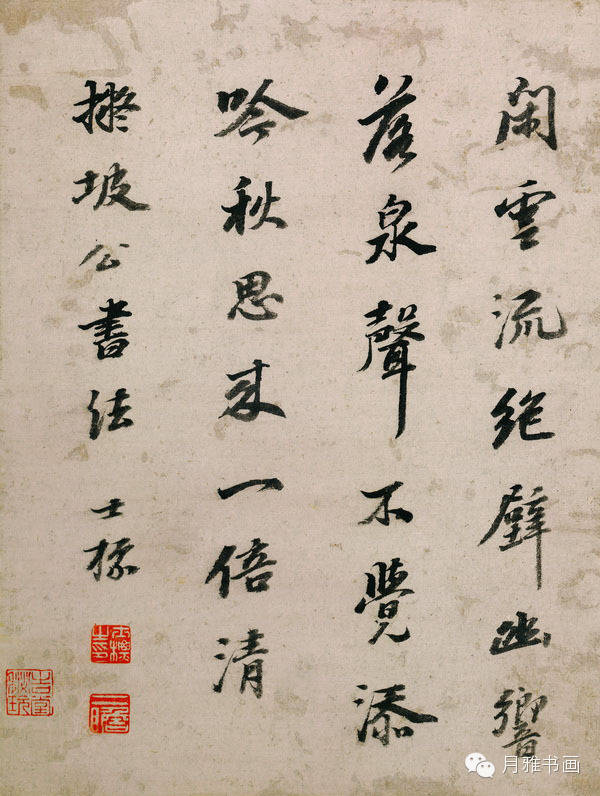 閑雲流絶壁幽響
落泉聲不覺添
吟秋思来一倍清
擬坡公書法 士標
二瞻
月雅书画